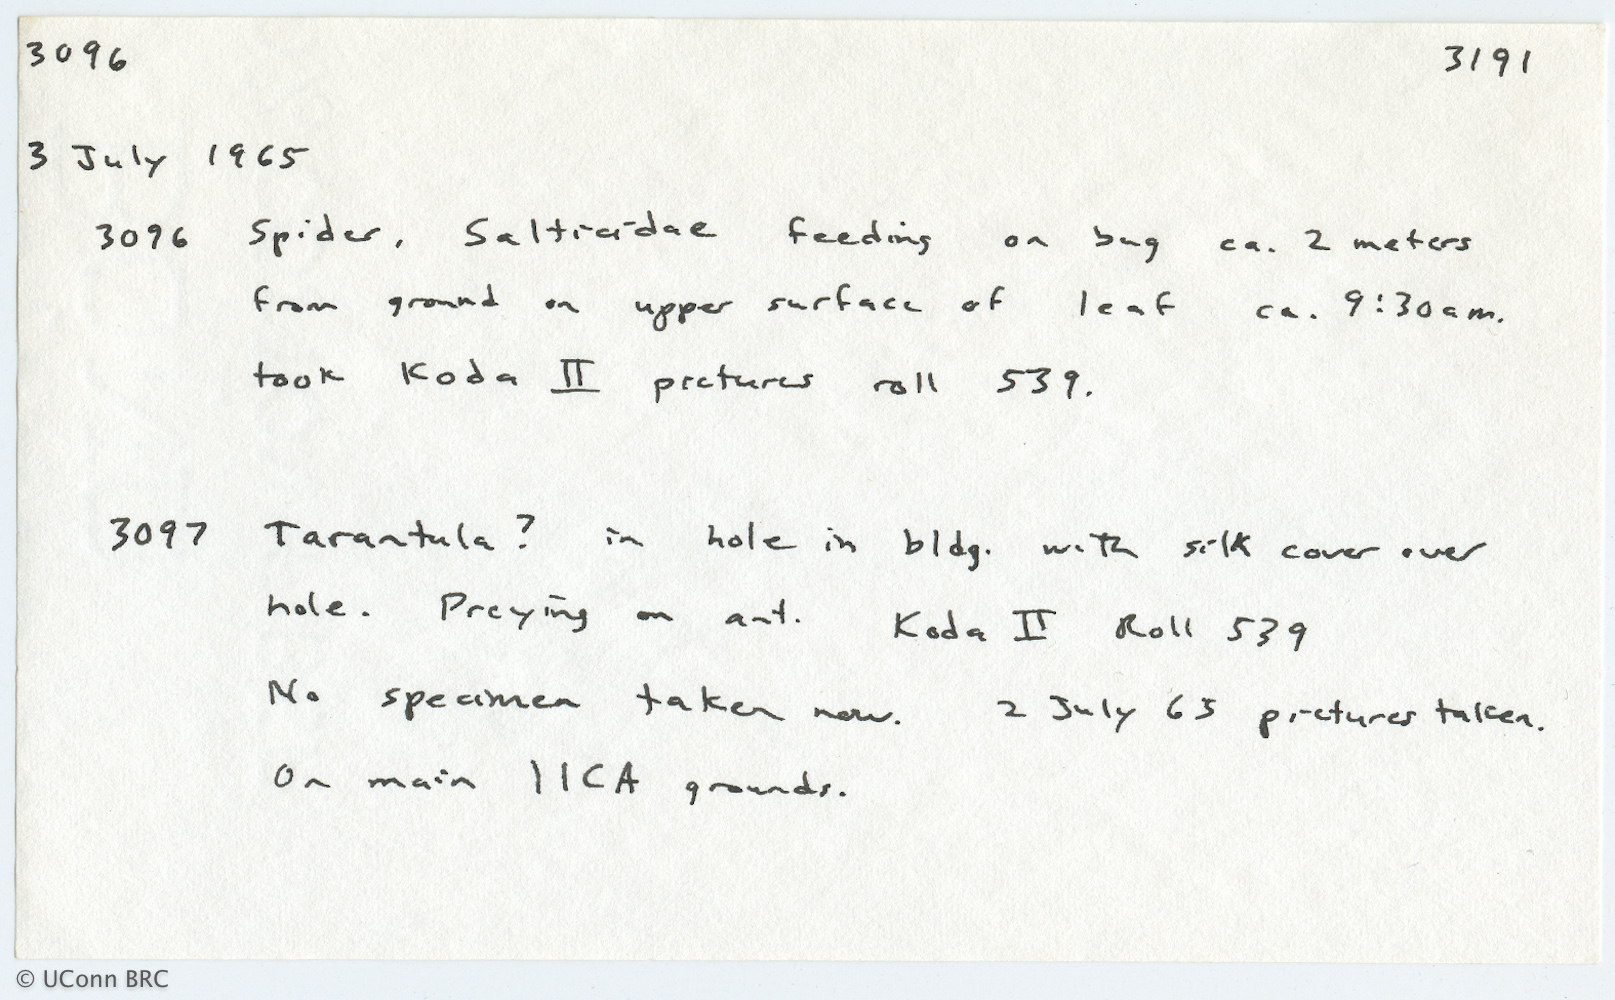 3096 3191
3 July 1965
3096 Spider, Salticidae feeding on bug ca. 2 meters
from ground on upper surface of leaf ca. 9:30am.
took Koda II pictures roll 539.
3097 Tarantula? in hole in bldg. with silk cover over
hole. Preying on ant. Koda II Roll 539
No specimen taken now. 2 July 65 pictures taken.
On main IICA grounds.
© UConn BRC